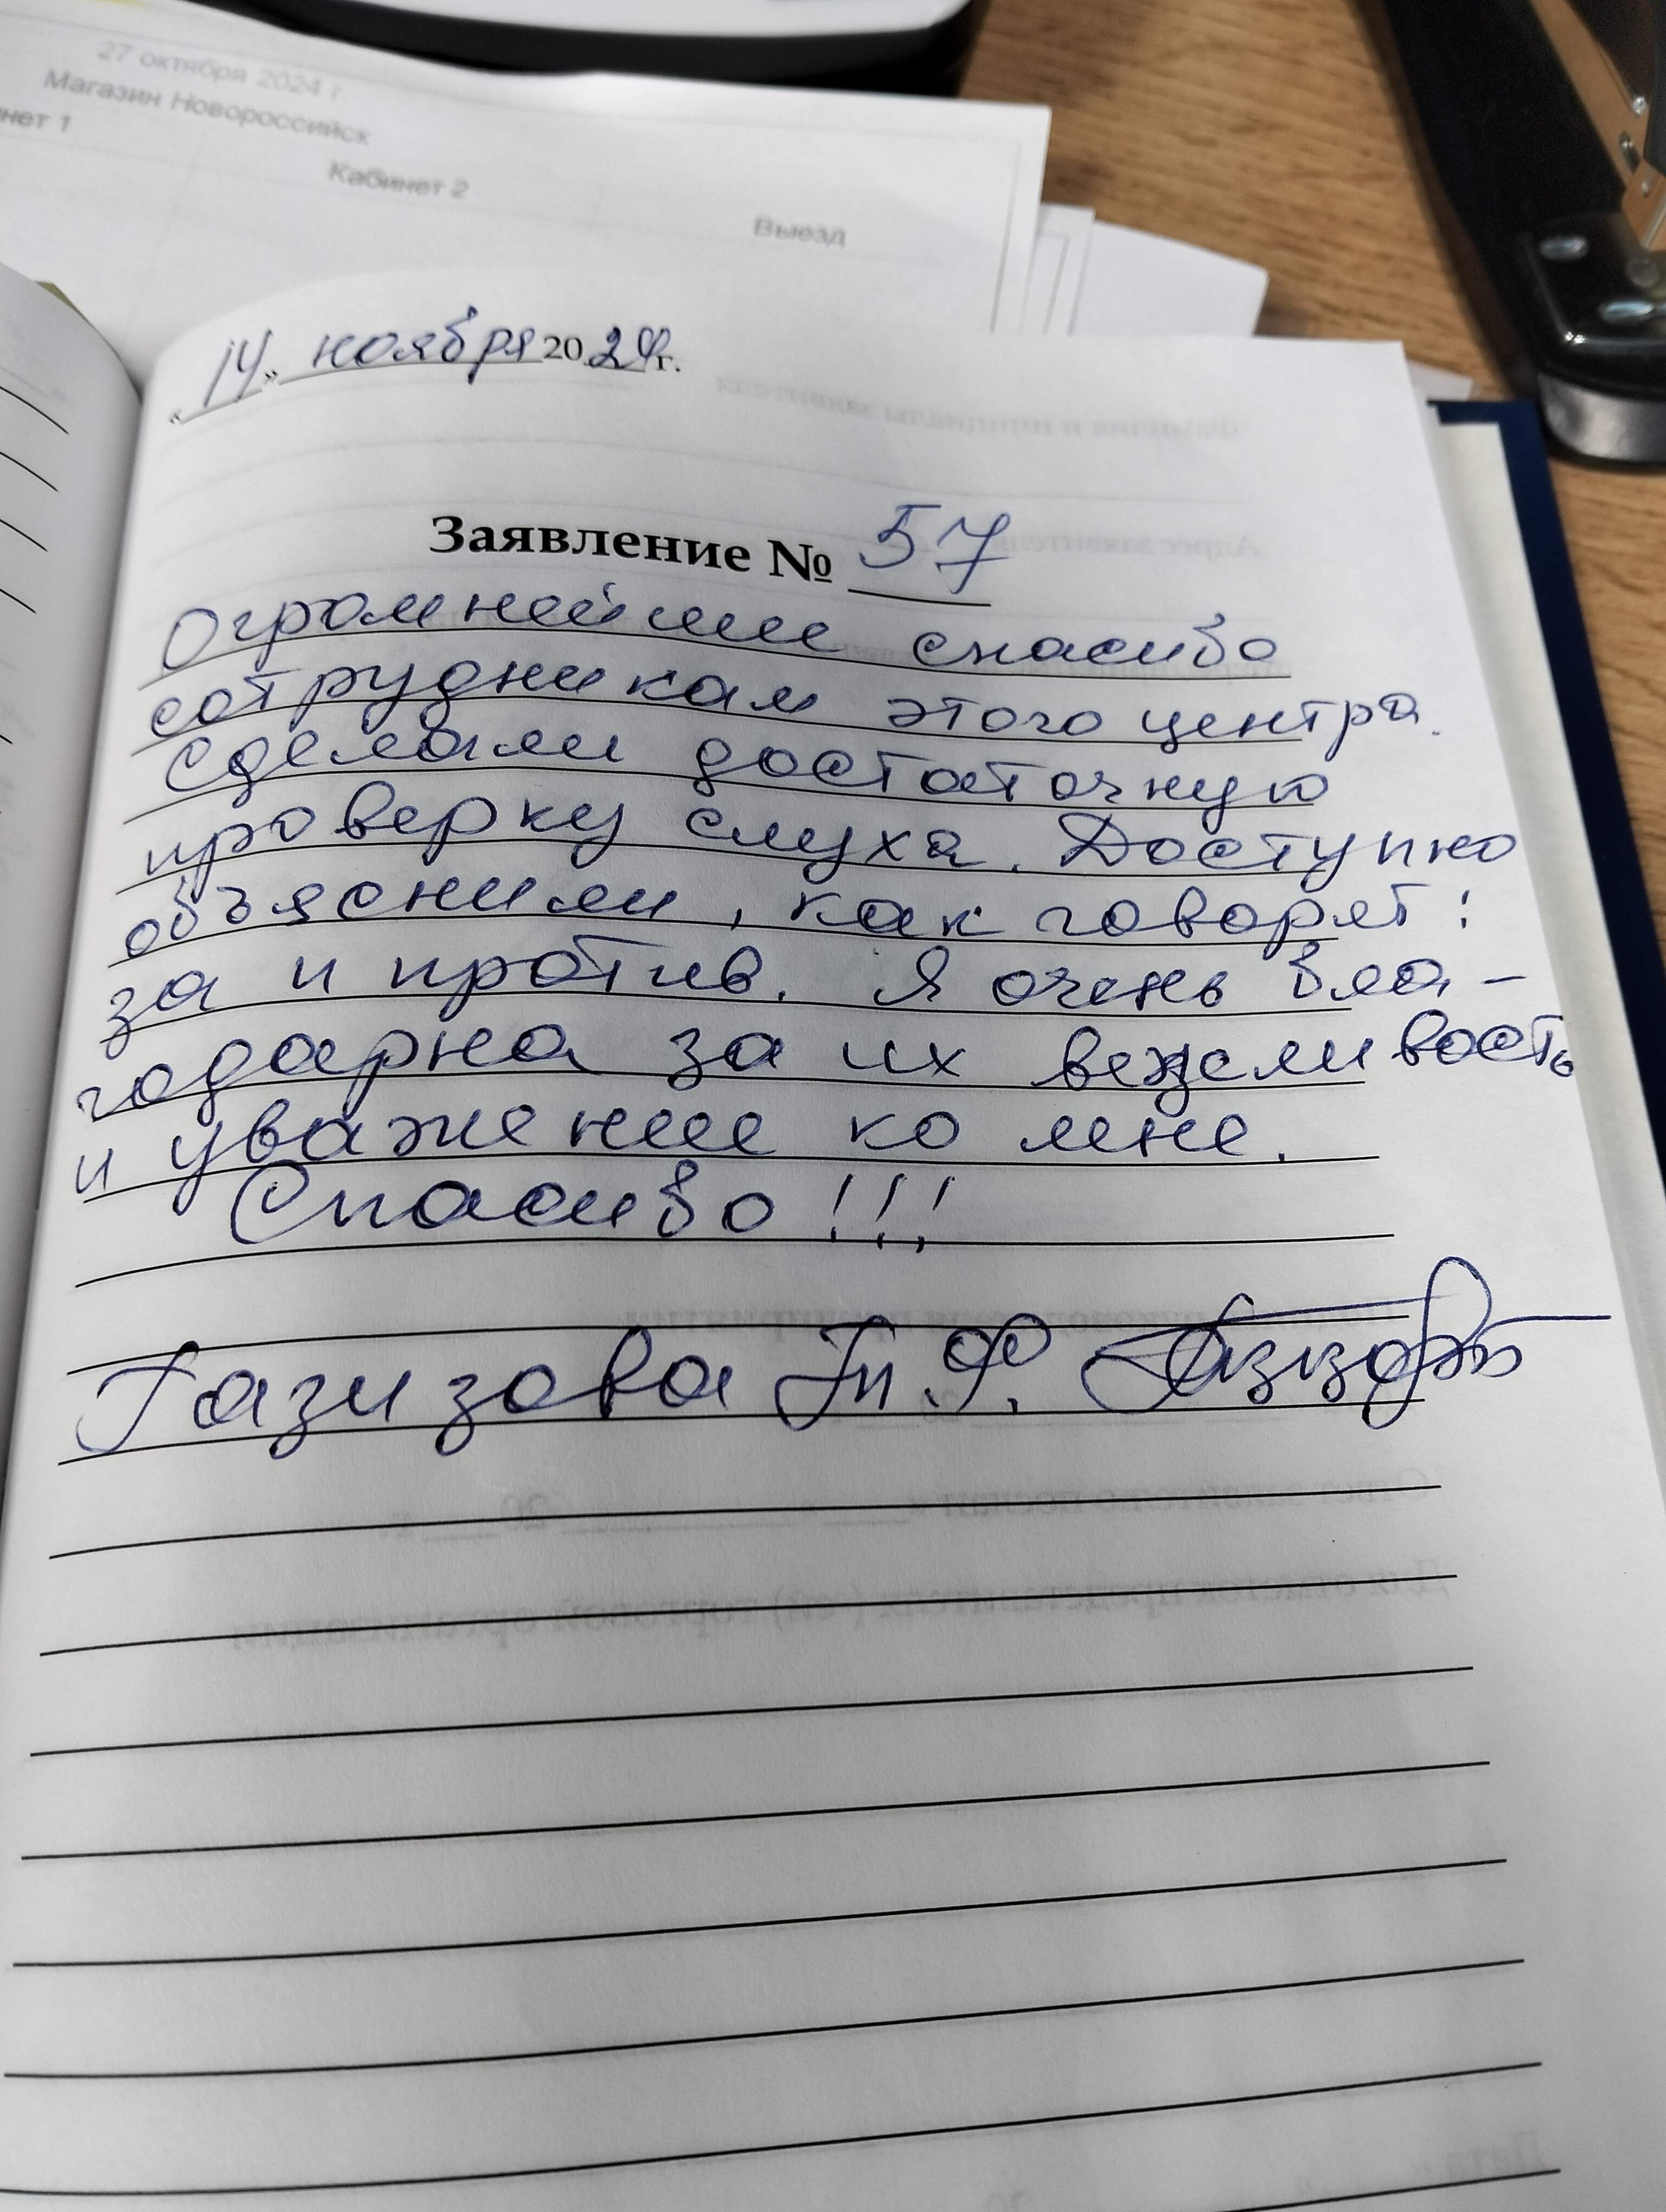 27 октября 2024 г.
Магазин Новороссийск
нет 1
Кабинет 2
Выезд
«14» ноября 2024 г.
Заявление № 57
Огромнейшее спасибо
сотрудникам этого центра.
Сделали достаточную
проверку слуха. Доступно
объяснили, как говорят:
за и против. Я очень бла-
годарна за их вежливость
и уважение ко мне.
Спасибо!!!
Газизова Т.Ф.